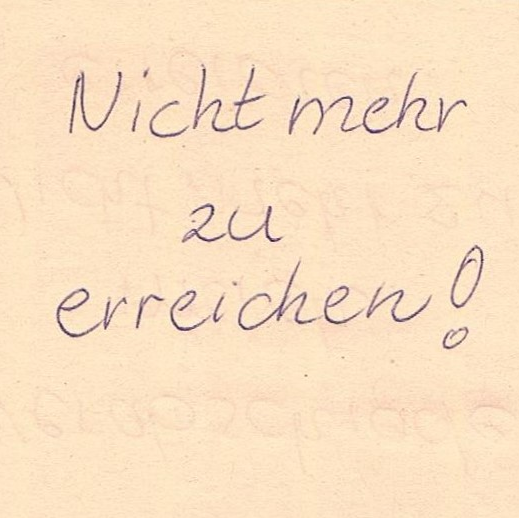 Nicht mehr
zu
erreichen!